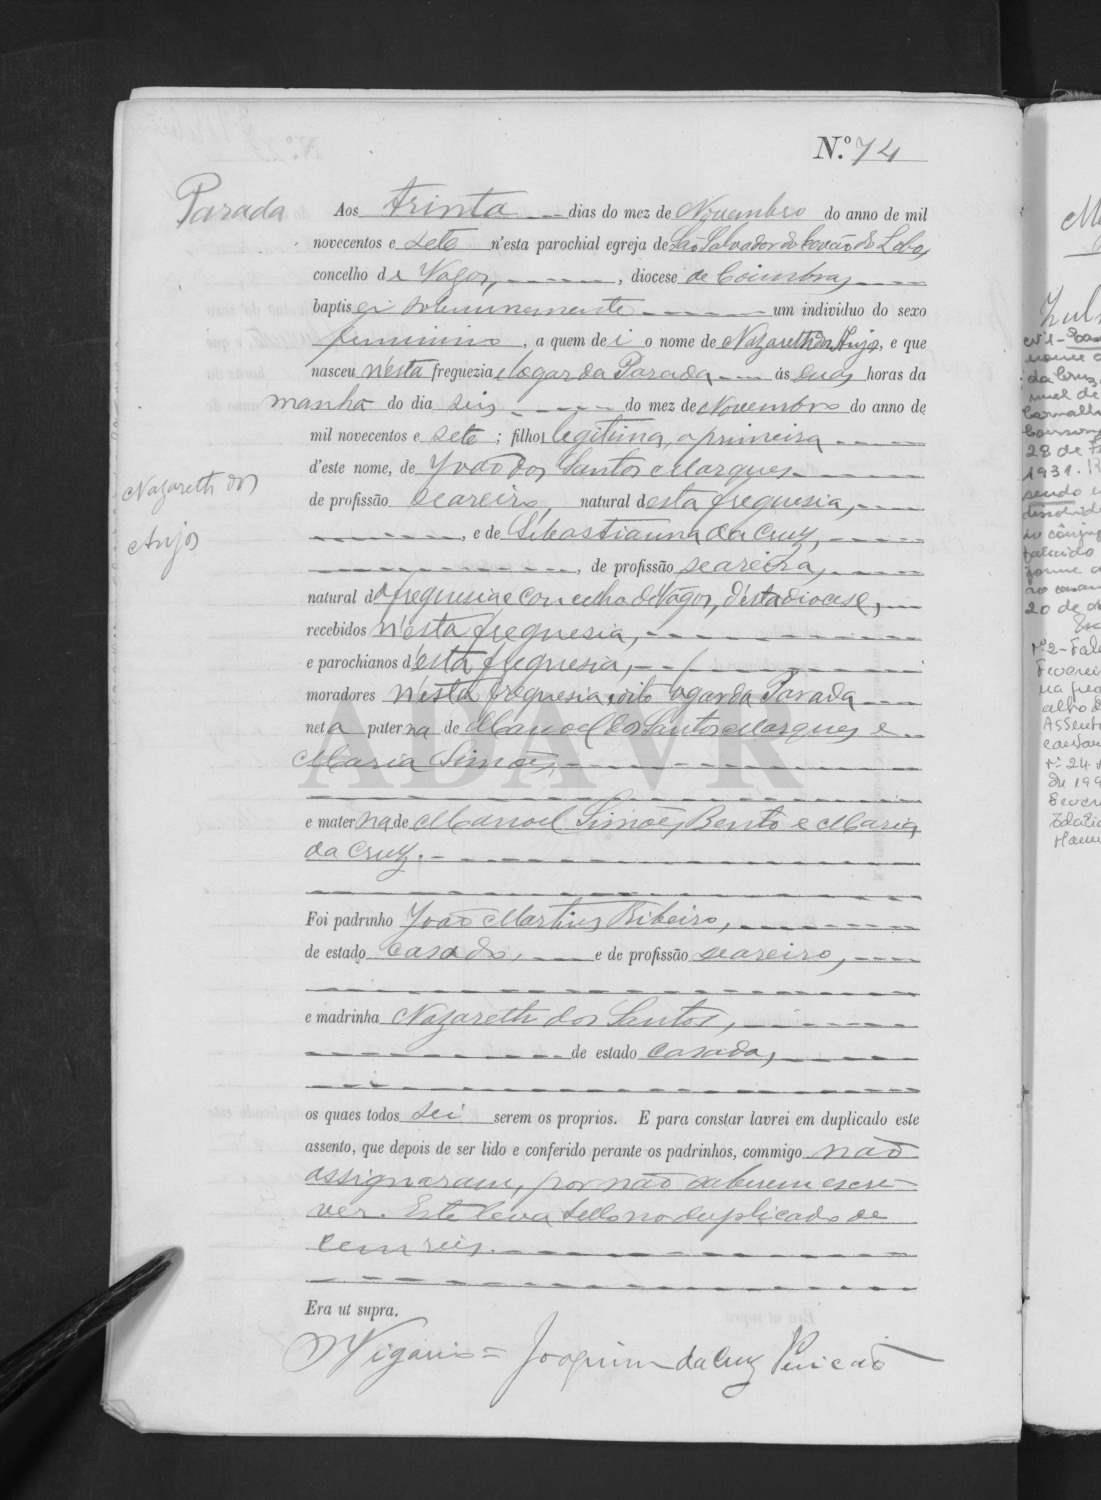 N.º 74
Parada
Aos trinta dias do mez de Novembro do anno de mil
novecentos e sete n'esta parochial egreja de São Salvador do Covão do Lobo,
concelho de Vagos, diocese de Coimbra,
baptisei solemnemente um individuo do sexo
feminino, a quem dei o nome de Nazareth dos Anjos, e que
nasceu n'esta freguezia e logar da Parada ás duas horas da
manhã do dia seis do mez de Novembro do anno de
mil novecentos e sete; filha legitima, a primeira
d'este nome, de João dos Santos Marques
Nazareth dos
de profissão seareiro, natural desta freguesia,
Anjos
, e de Sebastianna da Cruz,
, de profissão seareira,
natural da freguesia e concelho de Vagos, d'esta diocese,
recebidos n'esta freguesia,
e parochianos d'esta freguesia,
moradores n'esta freguesia, dito logar da Parada
neta paterna de Manoel dos Santos Marques e
Maria Simões,
e materna de Manoel Simões Bento e Maria
da Cruz.
Foi padrinho João Martins Ribeiro,
de estado casado, e de profissão seareiro,
e madrinha Nazareth dos Santos,
de estado casada,
os quaes todos sei serem os proprios. E para constar lavrei em duplicado este
assento, que depois de ser lido e conferido perante os padrinhos, commigo não
assignaram, por não saberem escre-
ver. Este leva sello no duplicado de
cem reis.
Era ut supra.
O Vigario = Joaquim da Cruz
ADAVR
28 de
1931.
sendo
20 de
Nº2-
Fevereiro
na
Assento
Nº 24
de 199